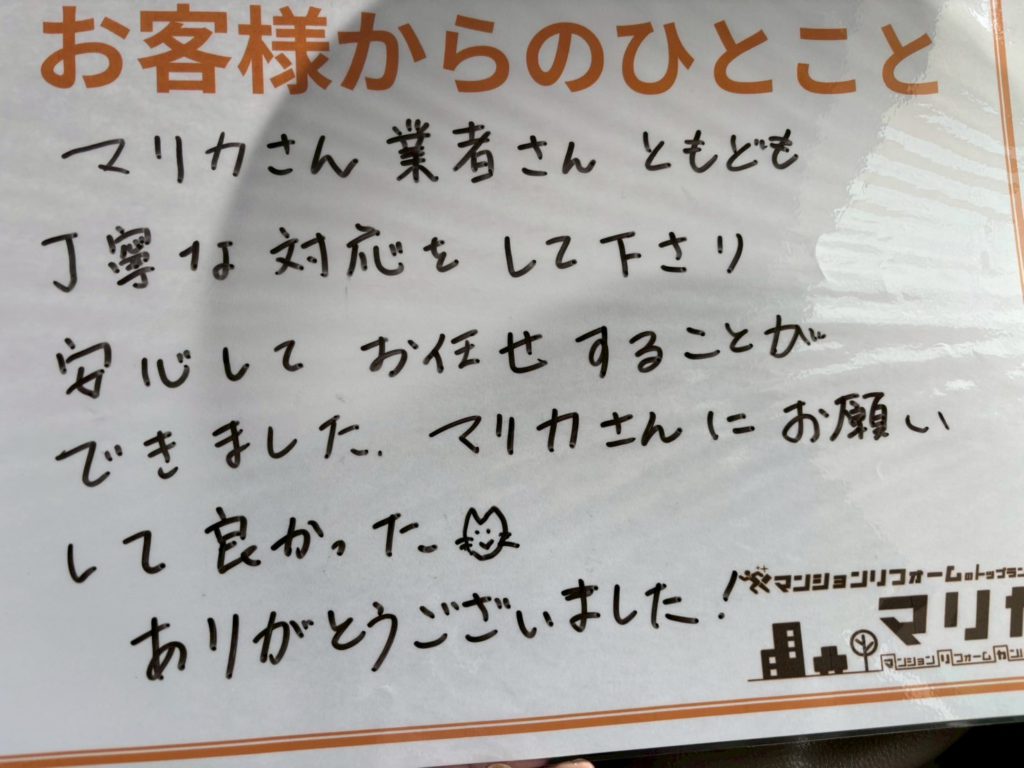 お客様からのひとこと
マリカさん 業者さん ともども
丁寧な対応をして下さり
安心して お任せすることが
できました. マリカさんにお願い
して良かった
ありがとうございました!
マンションリフォームのトップラン
マリカ
マンションリフォームカン